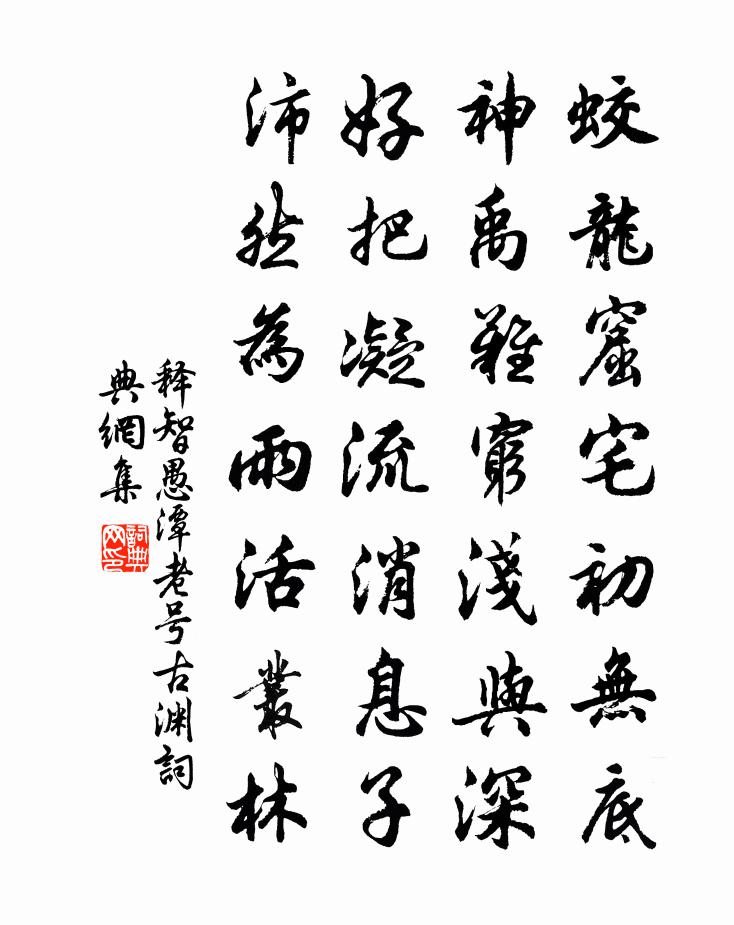 蛟龍窟宅初無底
神禹難窮淺與深
好把凝流消息子
沛然為雨活叢林
释智愚潭老号古渊詞
典網集
詞典网印